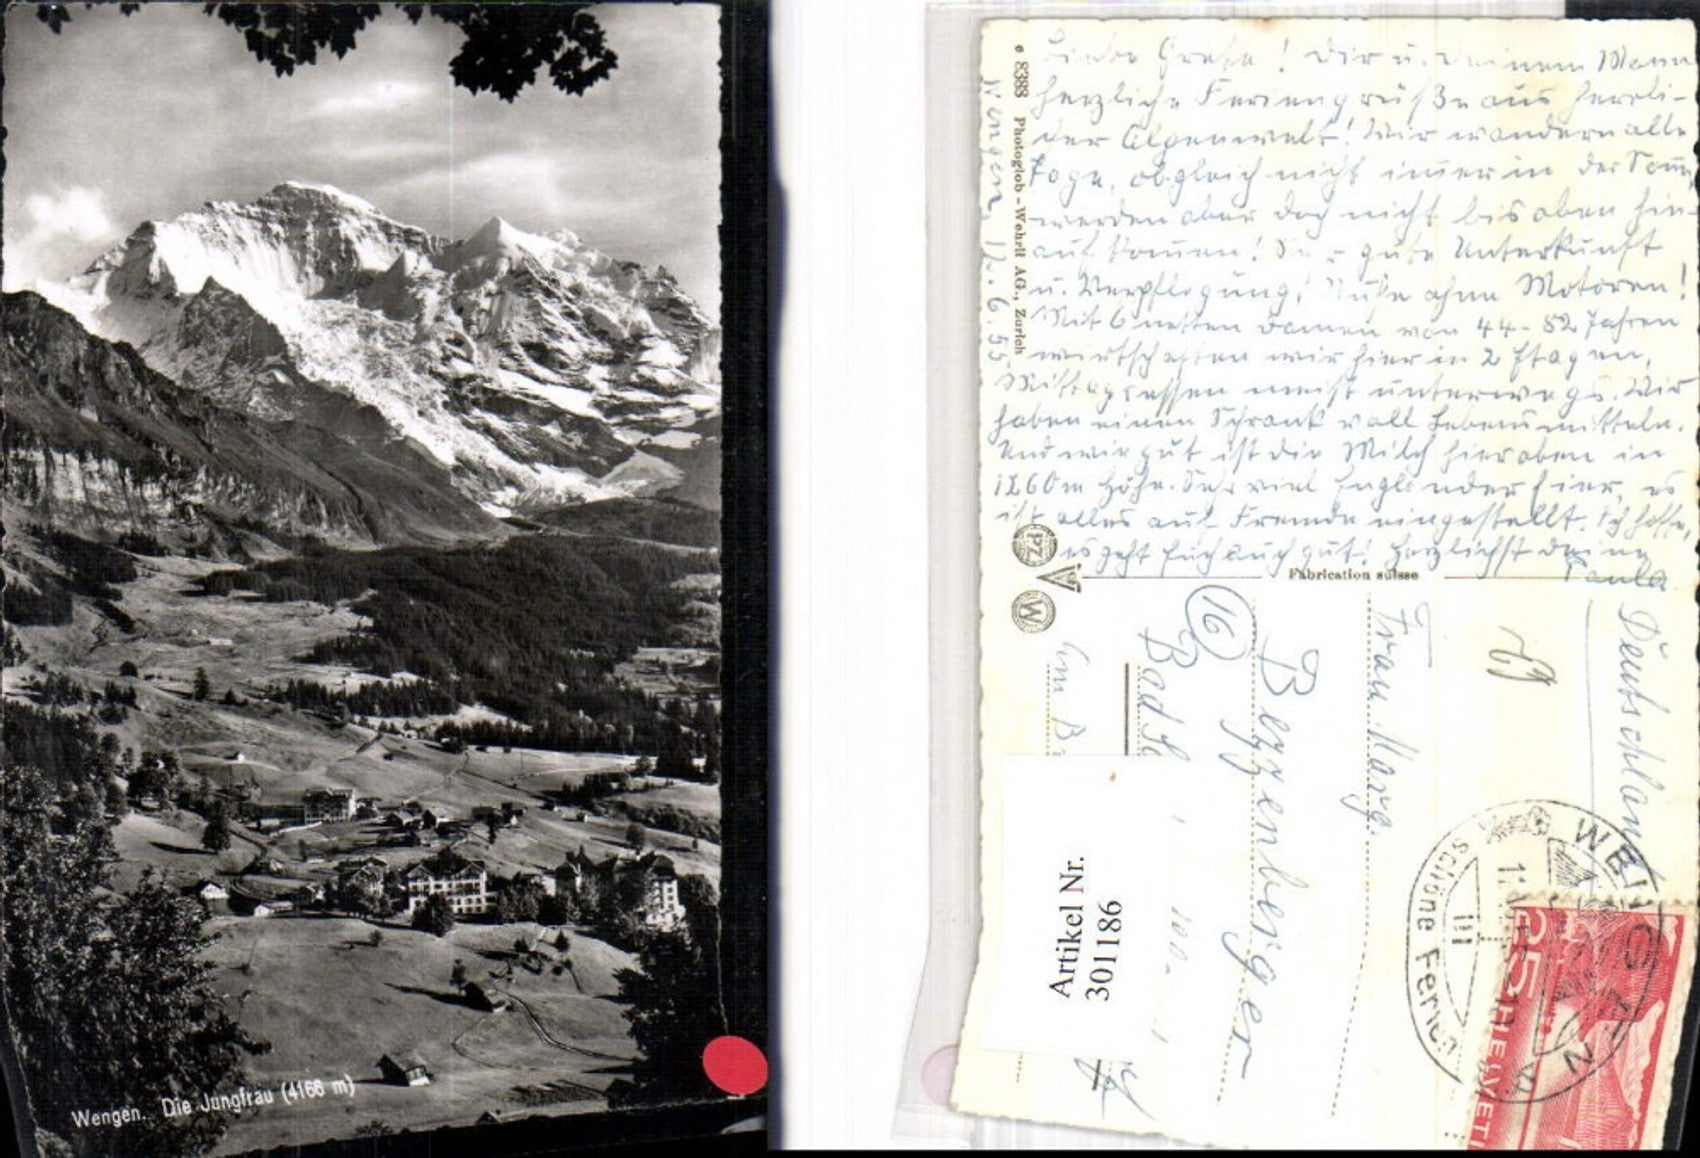 Wengen. Die Jungfrau (4166 m)
Liebe Grete! Dir u. Deinem Mann
herzliche Feriengrüße aus herrli-
der Alpenwelt! Wir wandern alle
Tage, obgleich nicht immer in der
werden aber doch nicht bis oben hin-
auf kommen! Sehr gute Unterkunft
u. Verpflegung! Ruhe ohne Motoren!
Mit 6 netten Damen von 44-82 Jahren
wirtschaften wir hier in 2 Etagen,
Mittagessen meist unterwegs. Wir
haben einen Schrank voll Lebensmitteln.
Und wie gut ist die Milch hier oben in
1260m Höhe. Sehr viel Engländer hier, es
ist alles auf Fremde eingestellt. Ich hoffe,
es geht Euch auch gut! Herzlichst Deine
Paula
Wengen, 12.6.55
e 8388 Photoglob-Wehrli AG., Zürich
PZ
W
Fabrication suisse
Deutschland
Frau Marg.
Belzzenberger
16
Bad
Artikel Nr.
301186
WENGEN
schöne Ferien
35
HELVETI